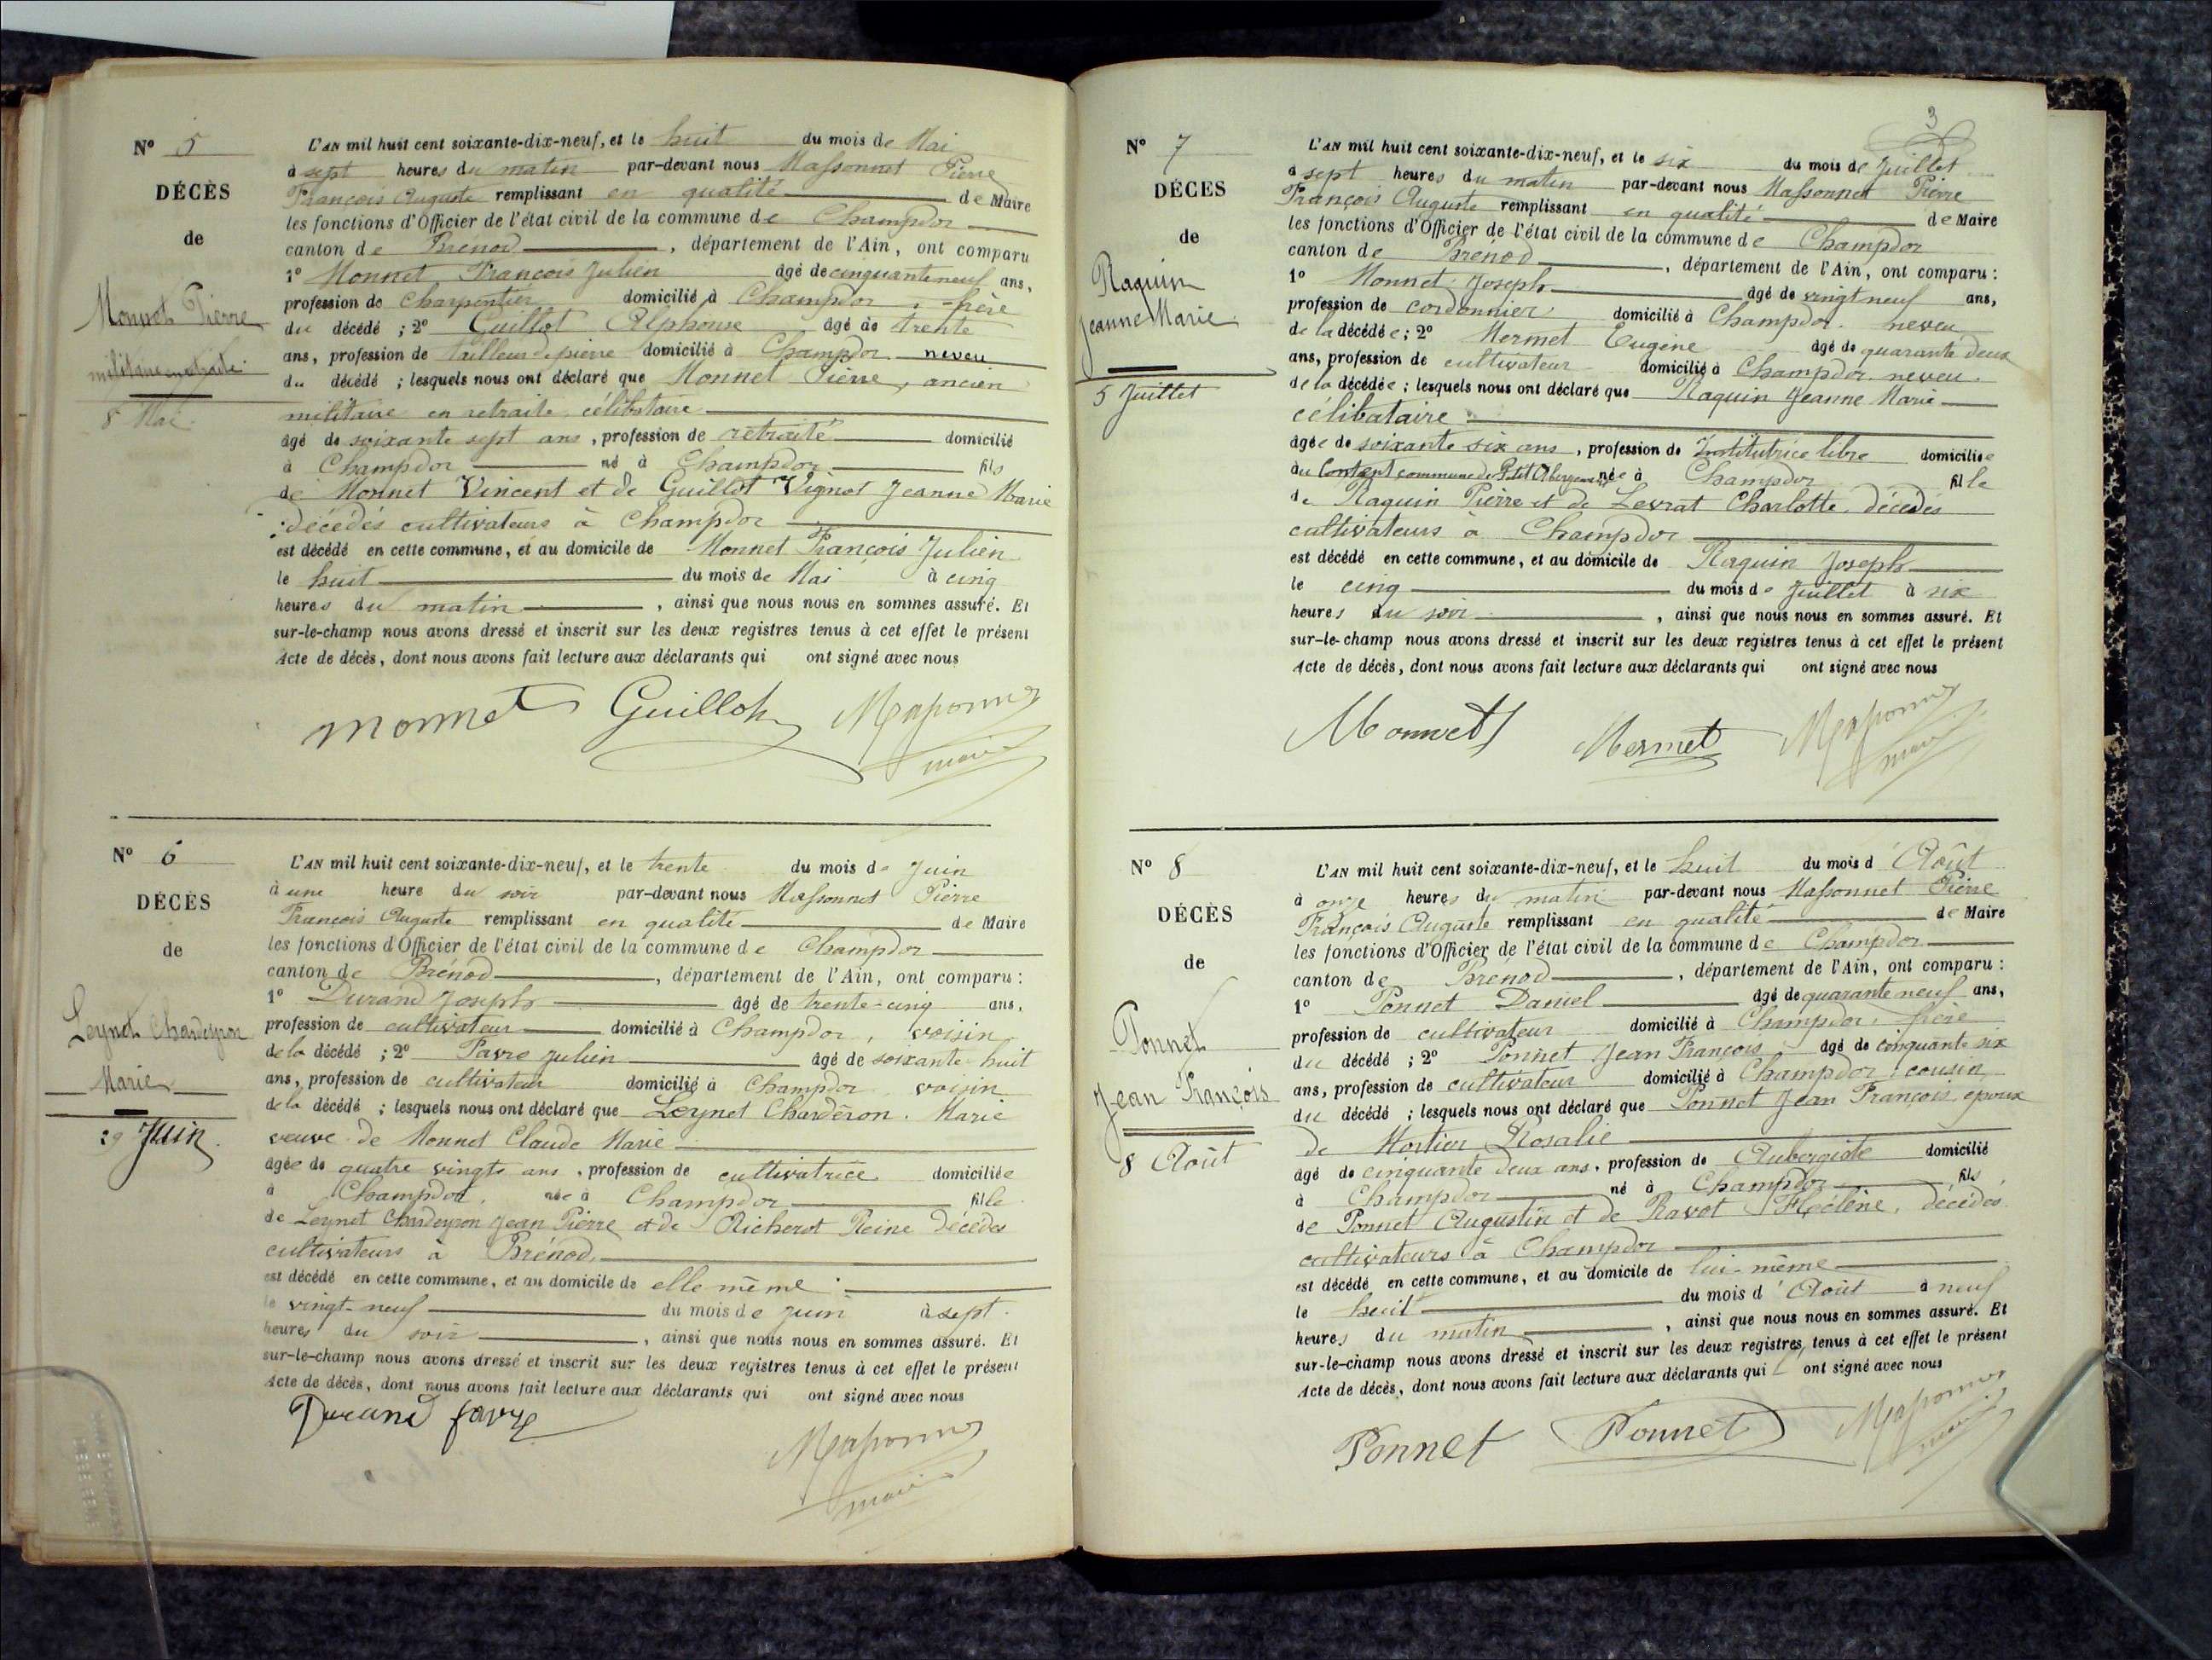 N° 5
DÉCÈS
de
Monnet Pierre
militaire en retraite
8 Mai
L'AN mil huit cent soixante-dix-neuf, et le huit du mois de Mai
à sept heures du matin par-devant nous Massonnet Pierre
François Auguste remplissant en qualité de Maire
les fonctions d'Officier de l'état civil de la commune de Champdor
canton de Brenod, département de l'Ain, ont comparu
1° Monnet François Julien âgé de cinquante neuf ans,
profession de Charpentier domicilié à Champdor, frère
du décédé ; 2° Guillot Alphonse âgé de trente
ans, profession de tailleur de pierre domicilié à Champdor neveu
du décédé ; lesquels nous ont déclaré que Monnet Pierre, ancien
militaire en retraite célibataire
âgé de soixante sept ans, profession de retraité domicilié
à Champdor né à Champdor fils
de Monnet Vincent et de Guillot Vignot Jeanne Marie
décédés cultivateurs à Champdor
est décédé en cette commune, et au domicile de Monnet François Julien
le huit du mois de Mai à cinq
heures du matin, ainsi que nous nous en sommes assuré. Et
sur-le-champ nous avons dressé et inscrit sur les deux registres tenus à cet effet le présent
Acte de décès, dont nous avons fait lecture aux déclarants qui ont signé avec nous
Monnet Guillot Massonnet
maire
N° 6
DÉCÈS
de
Leynet Chardeyron
Marie
29 Juin.
L'AN mil huit cent soixante-dix-neuf, et le trente du mois de Juin
à une heure du soir par-devant nous Massonnet Pierre
François Auguste remplissant en qualité de Maire
les fonctions d'Officier de l'état civil de la commune de Champdor
canton de Brénod, département de l'Ain, ont comparu :
1° Durand Joseph âgé de trente-cinq ans,
profession de cultivateur domicilié à Champdor, voisin
de la décédé ; 2° Favre Julien âgé de soixante-huit
ans, profession de cultivateur domicilié à Champdor voisin
de la décédé ; lesquels nous ont déclaré que Leynet Charderon. Marie
veuve de Monnet Claude Marie
âgée de quatre vingts ans, profession de cultivatrice domiciliée
à Champdor, née à Champdor fille
de Leynet Chardeyron Jean Pierre et de Richerot Reine décédés
cultivateurs à Brénod,
est décédé en cette commune, et au domicile de elle même
le vingt-neuf du mois de Juin à sept
heures du soir, ainsi que nous nous en sommes assuré. Et
sur-le-champ nous avons dressé et inscrit sur les deux registres tenus à cet effet le présent
Acte de décès, dont nous avons fait lecture aux déclarants qui ont signé avec nous
Durand favre
Massonnet
maire
3
N° 7
DÉCÈS
de
Raquin
Jeanne Marie
5 Juillet
L'AN mil huit cent soixante-dix-neuf, et le six du mois de Juillet
à sept heures du matin par-devant nous Massonnet Pierre
François Auguste remplissant en qualité de Maire
les fonctions d'Officier de l'état civil de la commune de Champdor
canton de Brénod, département de l'Ain, ont comparu :
1° Monnet Joseph âgé de vingt neuf ans,
profession de cordonnier domicilié à Champdor. neveu
de la décédée ; 2° Mermet Eugène âgé de quarante deux
ans, profession de cultivateur domicilié à Champdor neveu.
de la décédée ; lesquels nous ont déclaré que Raquin Jeanne Marie
célibataire
âgée de soixante six ans, profession de Institutrice libre domiciliée
au Content commune du Petit Abergement née à Champdor fille
de Raquin Pierre et de Levrat Charlotte, décédés
cultivateurs à Champdor
est décédé en cette commune, et au domicile de Raquin Joseph
le cinq du mois de Juillet à six
heures du soir, ainsi que nous nous en sommes assuré. Et
sur-le-champ nous avons dressé et inscrit sur les deux registres tenus à cet effet le présent
Acte de décès, dont nous avons fait lecture aux déclarants qui ont signé avec nous
Monnet Mermet Massonnet
maire
N° 8
DÉCÈS
de
Ponnet
Jean François
8 Août
L'AN mil huit cent soixante-dix-neuf, et le huit du mois d'Août
à onze heures du matin par-devant nous Massonnet Pierre
François Auguste remplissant en qualité de Maire
les fonctions d'Officier de l'état civil de la commune de Champdor
canton de Brénod, département de l'Ain, ont comparu :
1° Ponnet Daniel âgé de quarante neuf ans,
profession de cultivateur domicilié à Champdor, frère
du décédé ; 2° Ponnet Jean François âgé de cinquante six
ans, profession de cultivateur domicilié à Champdor, cousin
du décédé ; lesquels nous ont déclaré que Ponnet Jean François, époux
de Mortier Rosalie
âgé de cinquante deux ans, profession de Aubergiste domicilié
à Champdor né à Champdor fils
de Ponnet Augustin et de Ravot Hélène, décédés
cultivateurs à Champdor
est décédé en cette commune, et au domicile de lui-même
le huit du mois d'Août à neuf
heures du matin, ainsi que nous nous en sommes assuré. Et
sur-le-champ nous avons dressé et inscrit sur les deux registres tenus à cet effet le présent
Acte de décès, dont nous avons fait lecture aux déclarants qui ont signé avec nous
Ponnet Ponnet Massonnet
maire